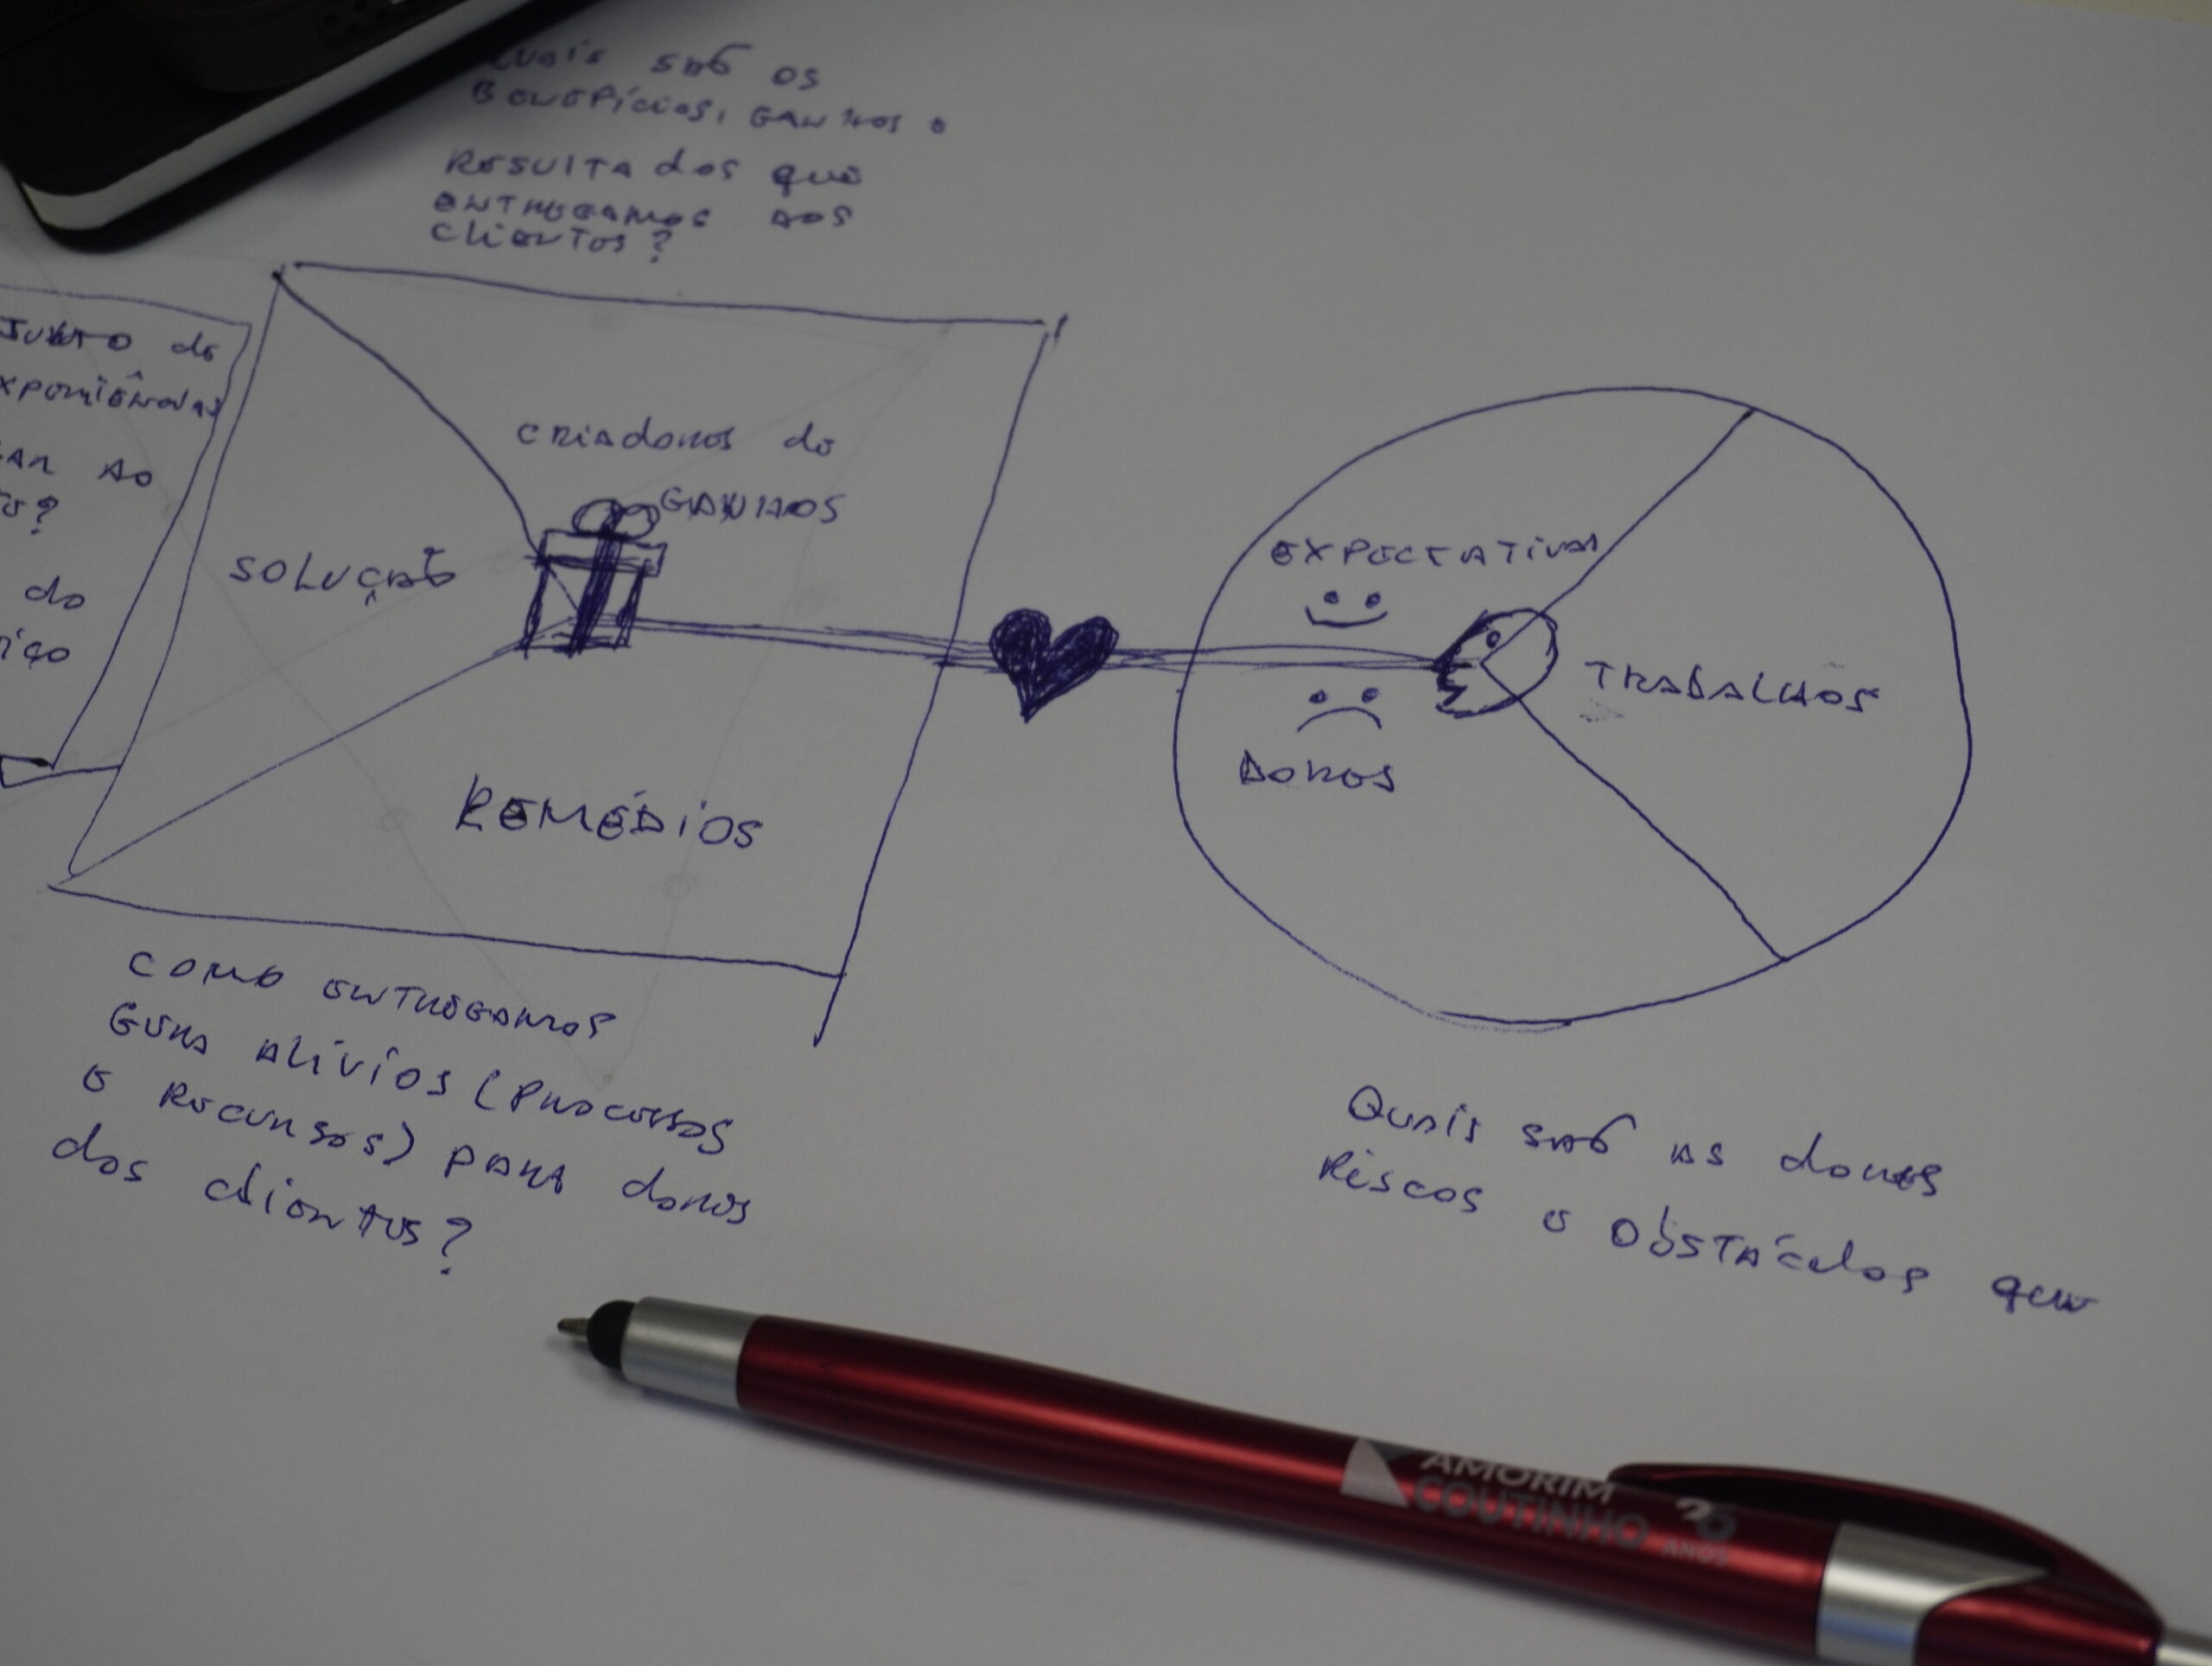 QUAIS SÃO OS
BENEFÍCIOS, GANHOS E
RESULTADOS QUE
ENTREGAMOS AOS
CLIENTES?
JUNTO DE
EXPERIÊNCIAS
AO
DO
CRIADORES DE
GANHOS
SOLUÇÃO
REMÉDIOS
EXPECTATIVAS
TRABALHOS
DORES
COMO ENTREGAMOS
GERA ALÍVIOS (PROCESSOS
E RECURSOS) PARA DORES
DOS CLIENTES?
QUAIS SÃO AS DORES
RISCOS E OBSTÁCULOS QUE
AMORIM
COUTINHO
26
ANOS